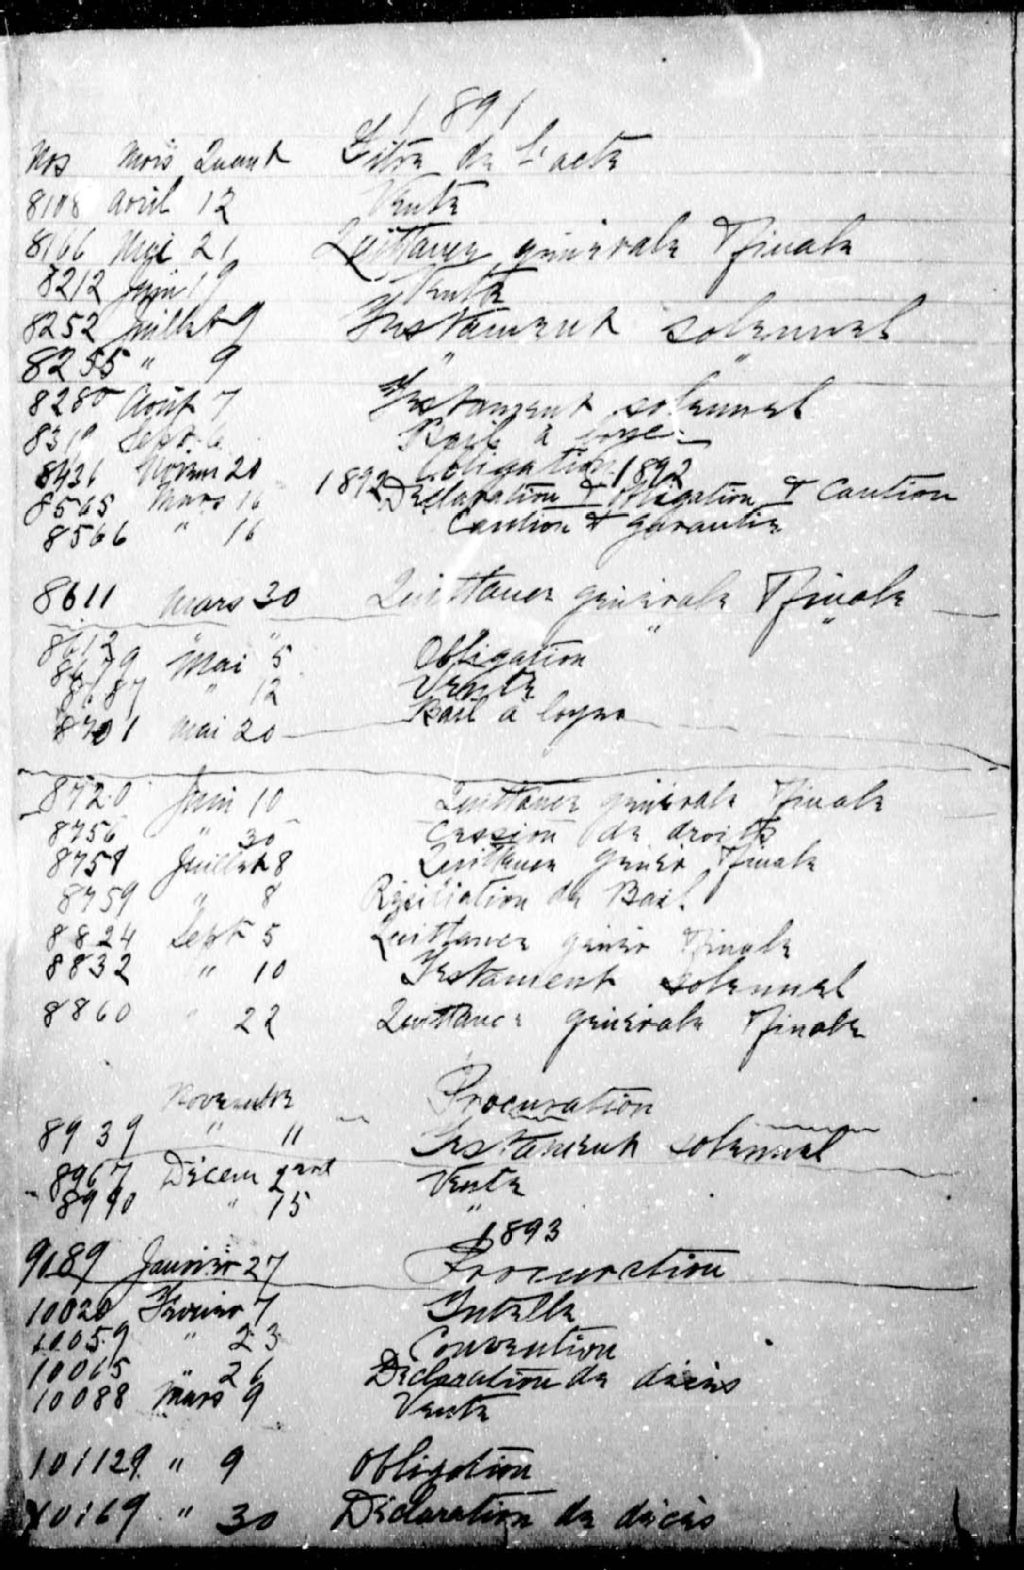 1891
Nos Mois Quant Titre de l'acte
8108 avril 12 Vente
8166 Mai 21 Quittance générale & finale
8212 Juin 19 Vente
8252 Juillet 9 Testament solennel
8255 " 9 " "
8280 Août 7 Testament solennel
831 Sept. 6 Bail à
8436 Novem 20 Obligation 1892
8565 Mars 16 1892 Déclaration & Obligation & Caution
8566 " 16 Caution & garantie
8611 Mars 30 Quittance générale & finale
8612 " " " "
8679 Mai 5 Obligation
8687 " 12 Vente
8701 mai 20 Bail à loyer
8720 Juin 10 Quittance générale & finale
8756 " 30 Cession de droits
8758 Juillet 8 Quittance génér & finale
8759 " 8 Résiliation de Bail
8824 Sept 5 Quittance génér & finale
8832 " 10 Testament solennel
8860 " 22 Quittance générale & finale
Novembre Procuration
8939 " 11 Testament solennel
8967 Décem Vente
8990 " 15 "
1893
9189 Janvier 27 Procuration
10020 Février 7 Tutelle
10059 " 23 Convention
10065 " 26 Déclaration de décès
10088 Mars 9 Vente
101129 " 9 Obligation
10169 " 30 Déclaration de décès